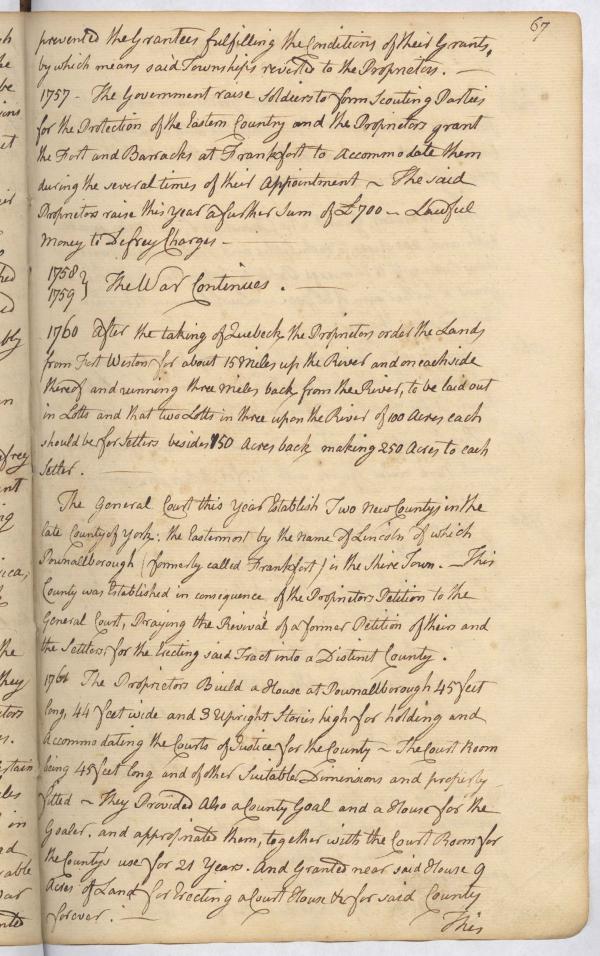 67
prevented the Grantees fulfilling the Conditions of their Grants,
by which means said Townships reverted to the Proprietors. —
1757 - The Government raise Soldiers to form Scouting Parties
for the Protection of the Eastern Country and the Proprietors grant
the Fort and Barracks at Frankfort to accommodate them
during the several times of their Appointment ~ The said
Proprietors raise this year a further Sum of £700 — Lawful
Money to Defrey Charges —
1758 }
1759 } The War Continues . —
1760 After the taking of Quebeck the Proprietors order the Lands
from Fort Weston for about 15 Miles up the River and on each side
thereof and running three Miles back from the River, to be laid out
in Lotts and that two Lotts in three upon the River of 100 Acres each
should be for Setlers besides 150 Acres back making 250 Acres to each
Setler . —
The General Court this year Establish Two New County's in the
late County of York: the Eastermost by the name of Lincoln of which
Pownallborough (formerly called Frankfort) is the Shire Town. — This
County was Established in consequence of the Proprietors Petition to the
General Court, Praying the Revival of a former Petition of theirs and
the Settlers, for the Erecting said Tract into a Distinct County .
1761 The Proprietors Build a House at Pownallborough 45 feet
long, 44 feet wide and 3 Upright Stories high for holding and
Accommodating the Courts of Justice for the County ~ The Court Room
being 45 feet long and of other Suitable Dimensions and properly
fitted ~ They Provided Also a County Goal and a House for the
Goaler. and appropriated them, together with the Court Room for
the County's use for 21 Years. And Granted near said House 9
Acres of Land for Erecting a Court House &c for said County
forever. —
This